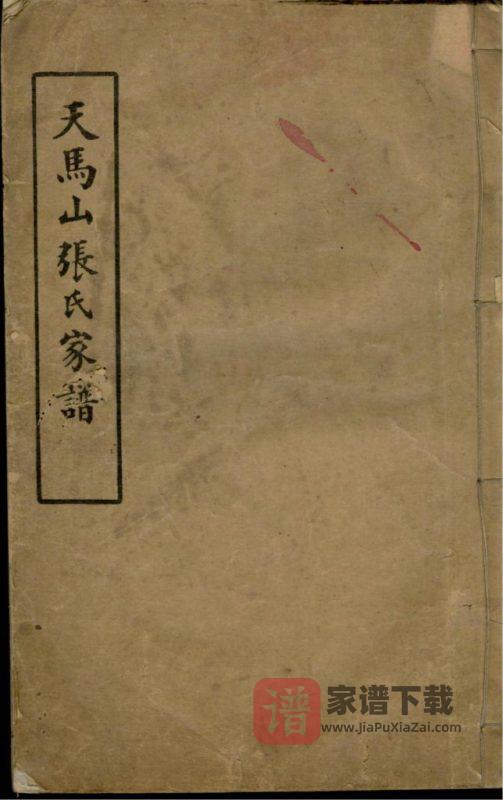 天馬山張氏家譜
谱
家谱下载
www.JiaPuXiaZai.com